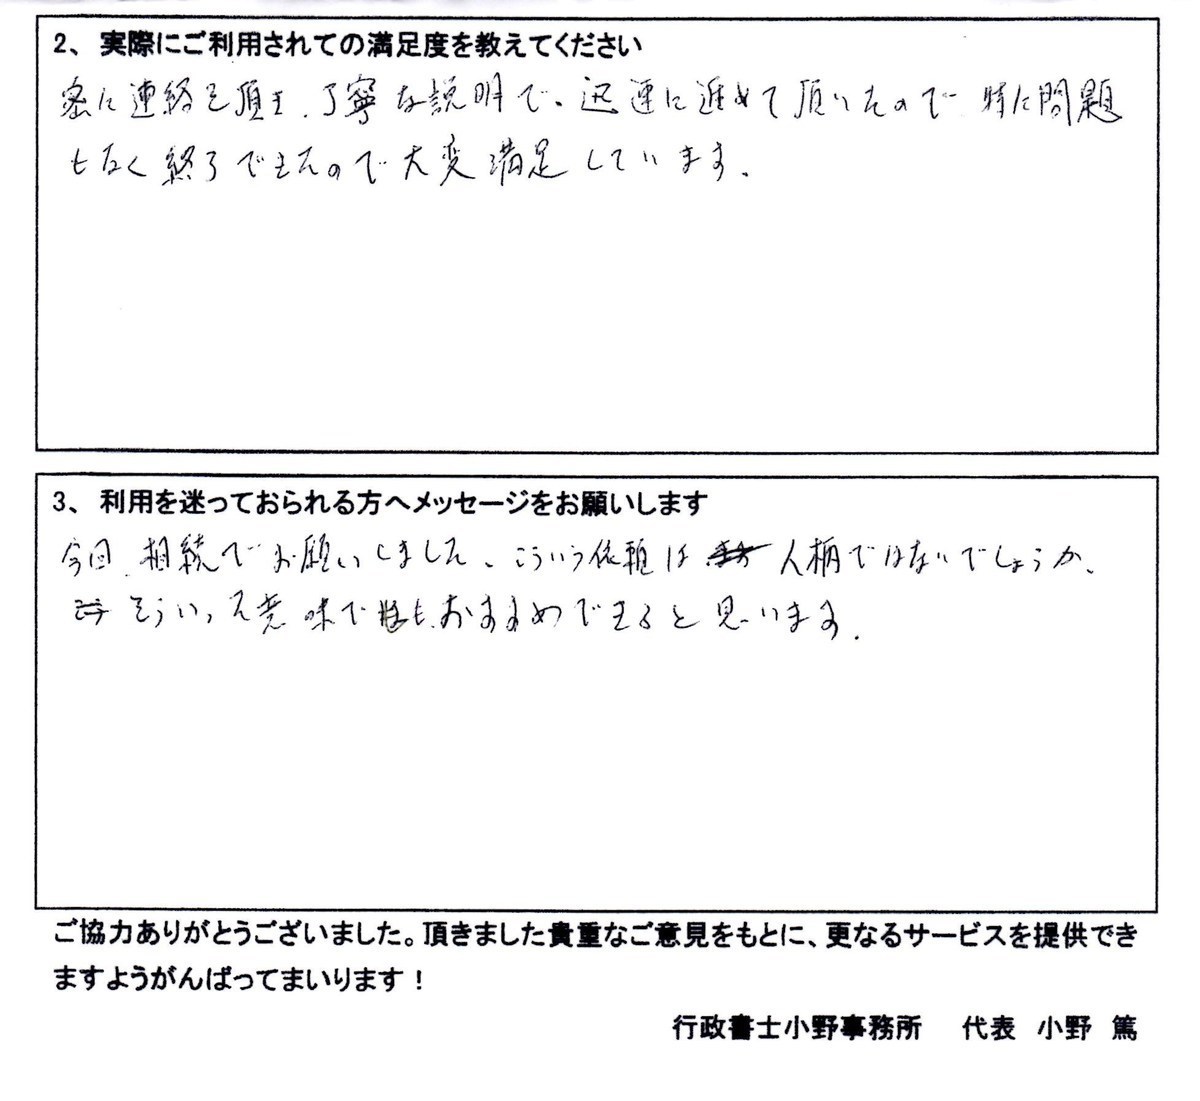 2、実際にご利用されての満足度を教えてください
密に連絡を頂き、丁寧な説明で、迅速に進めて頂いたので 特に問題
もなく終了できたので大変満足しています。
3、利用を迷っておられる方へメッセージをお願いします
今回、相続でお願いしました、こういう依頼は 人柄ではないでしょうか、
そういった意味で おすすめできると思います。
ご協力ありがとうございました。頂きました貴重なご意見をもとに、更なるサービスを提供でき
ますようがんばってまいります！
行政書士小野事務所 代表 小野 篤